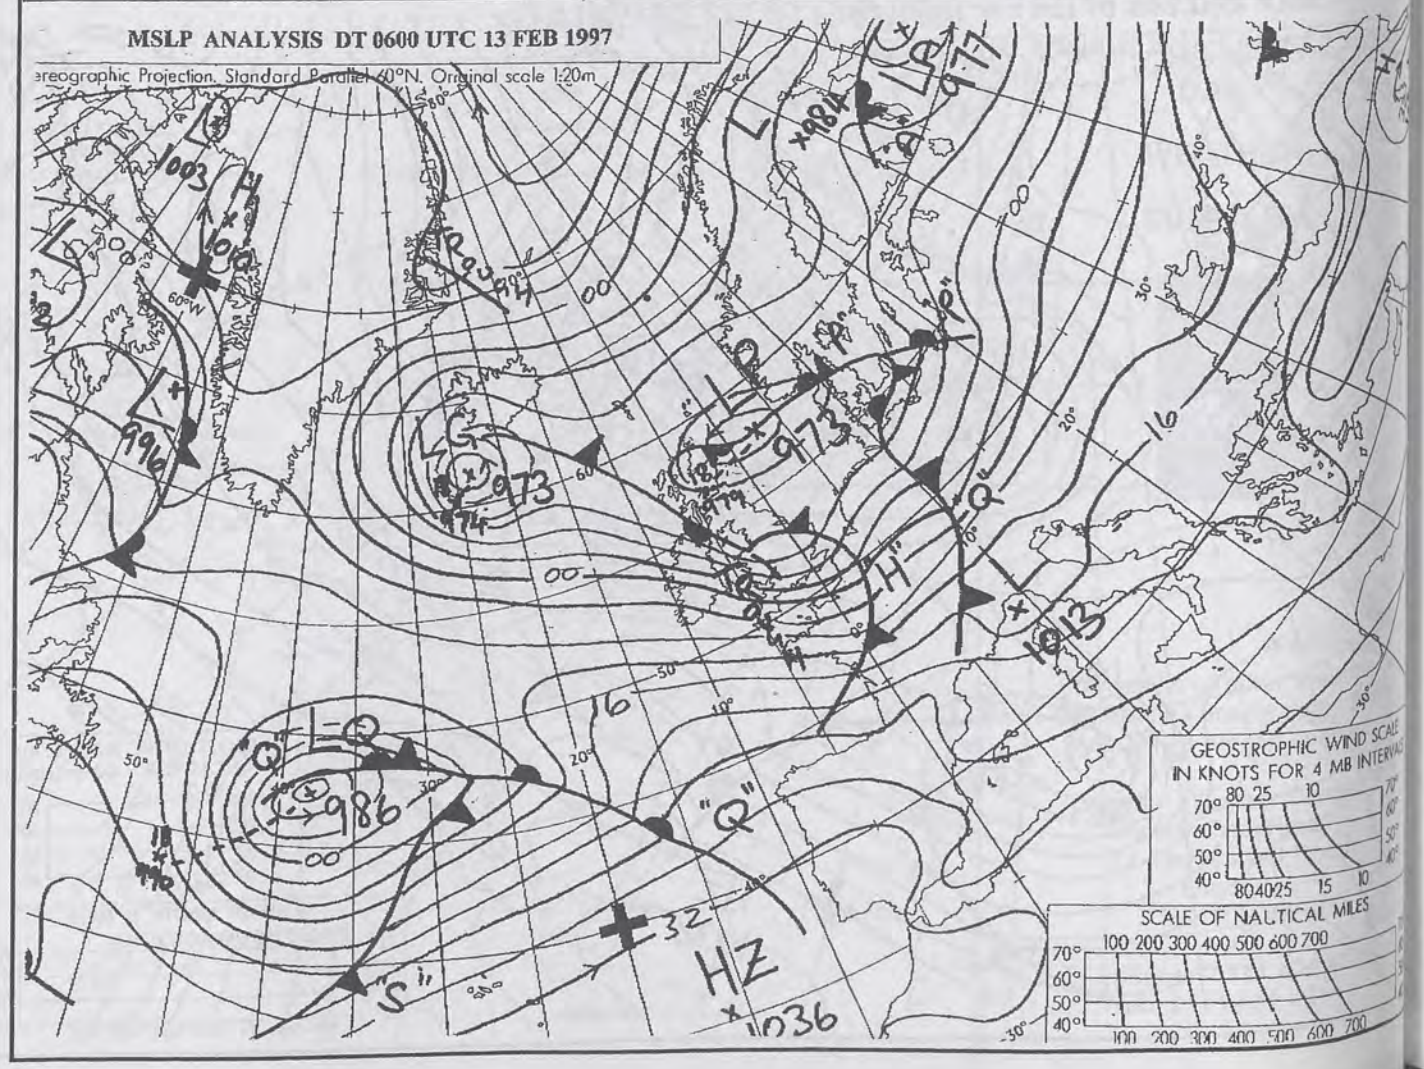 MSLP ANALYSIS DT 0600 UTC 13 FEB 1997
ereographic Projection. Standard Parallel 60°N. Original scale 1:20m
80°
L A
977
H
L
x984
L
1003
H
1010
60°W
40°
00
00
30°
L
"Q"
L P
973
L
996
L G
973
974
60
979
20°
16
"Q"
"H"
10°
0°
1013
00
50°
16
10°
20°
50°
"Q"
L Q
986
30°
00
990
"Q"
40°
32
HZ
1036
"S"
L
30°
30°
GEOSTROPHIC WIND SCALE
IN KNOTS FOR 4 MB INTERVA
80 25 10
70° 70°
60° 60°
50° 50°
40° 40°
80 40 25 15 10
SCALE OF NAUTICAL MILES
100 200 300 400 500 600 700
70°
60°
50°
40°
100 200 300 400 500 600 700